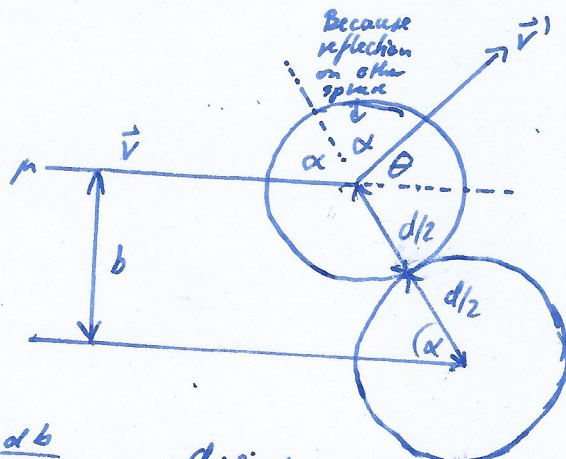 Because
reflection
on other
sphere
α α θ
v⃗ '
μ v⃗
b
d/2
d/2
(α
db